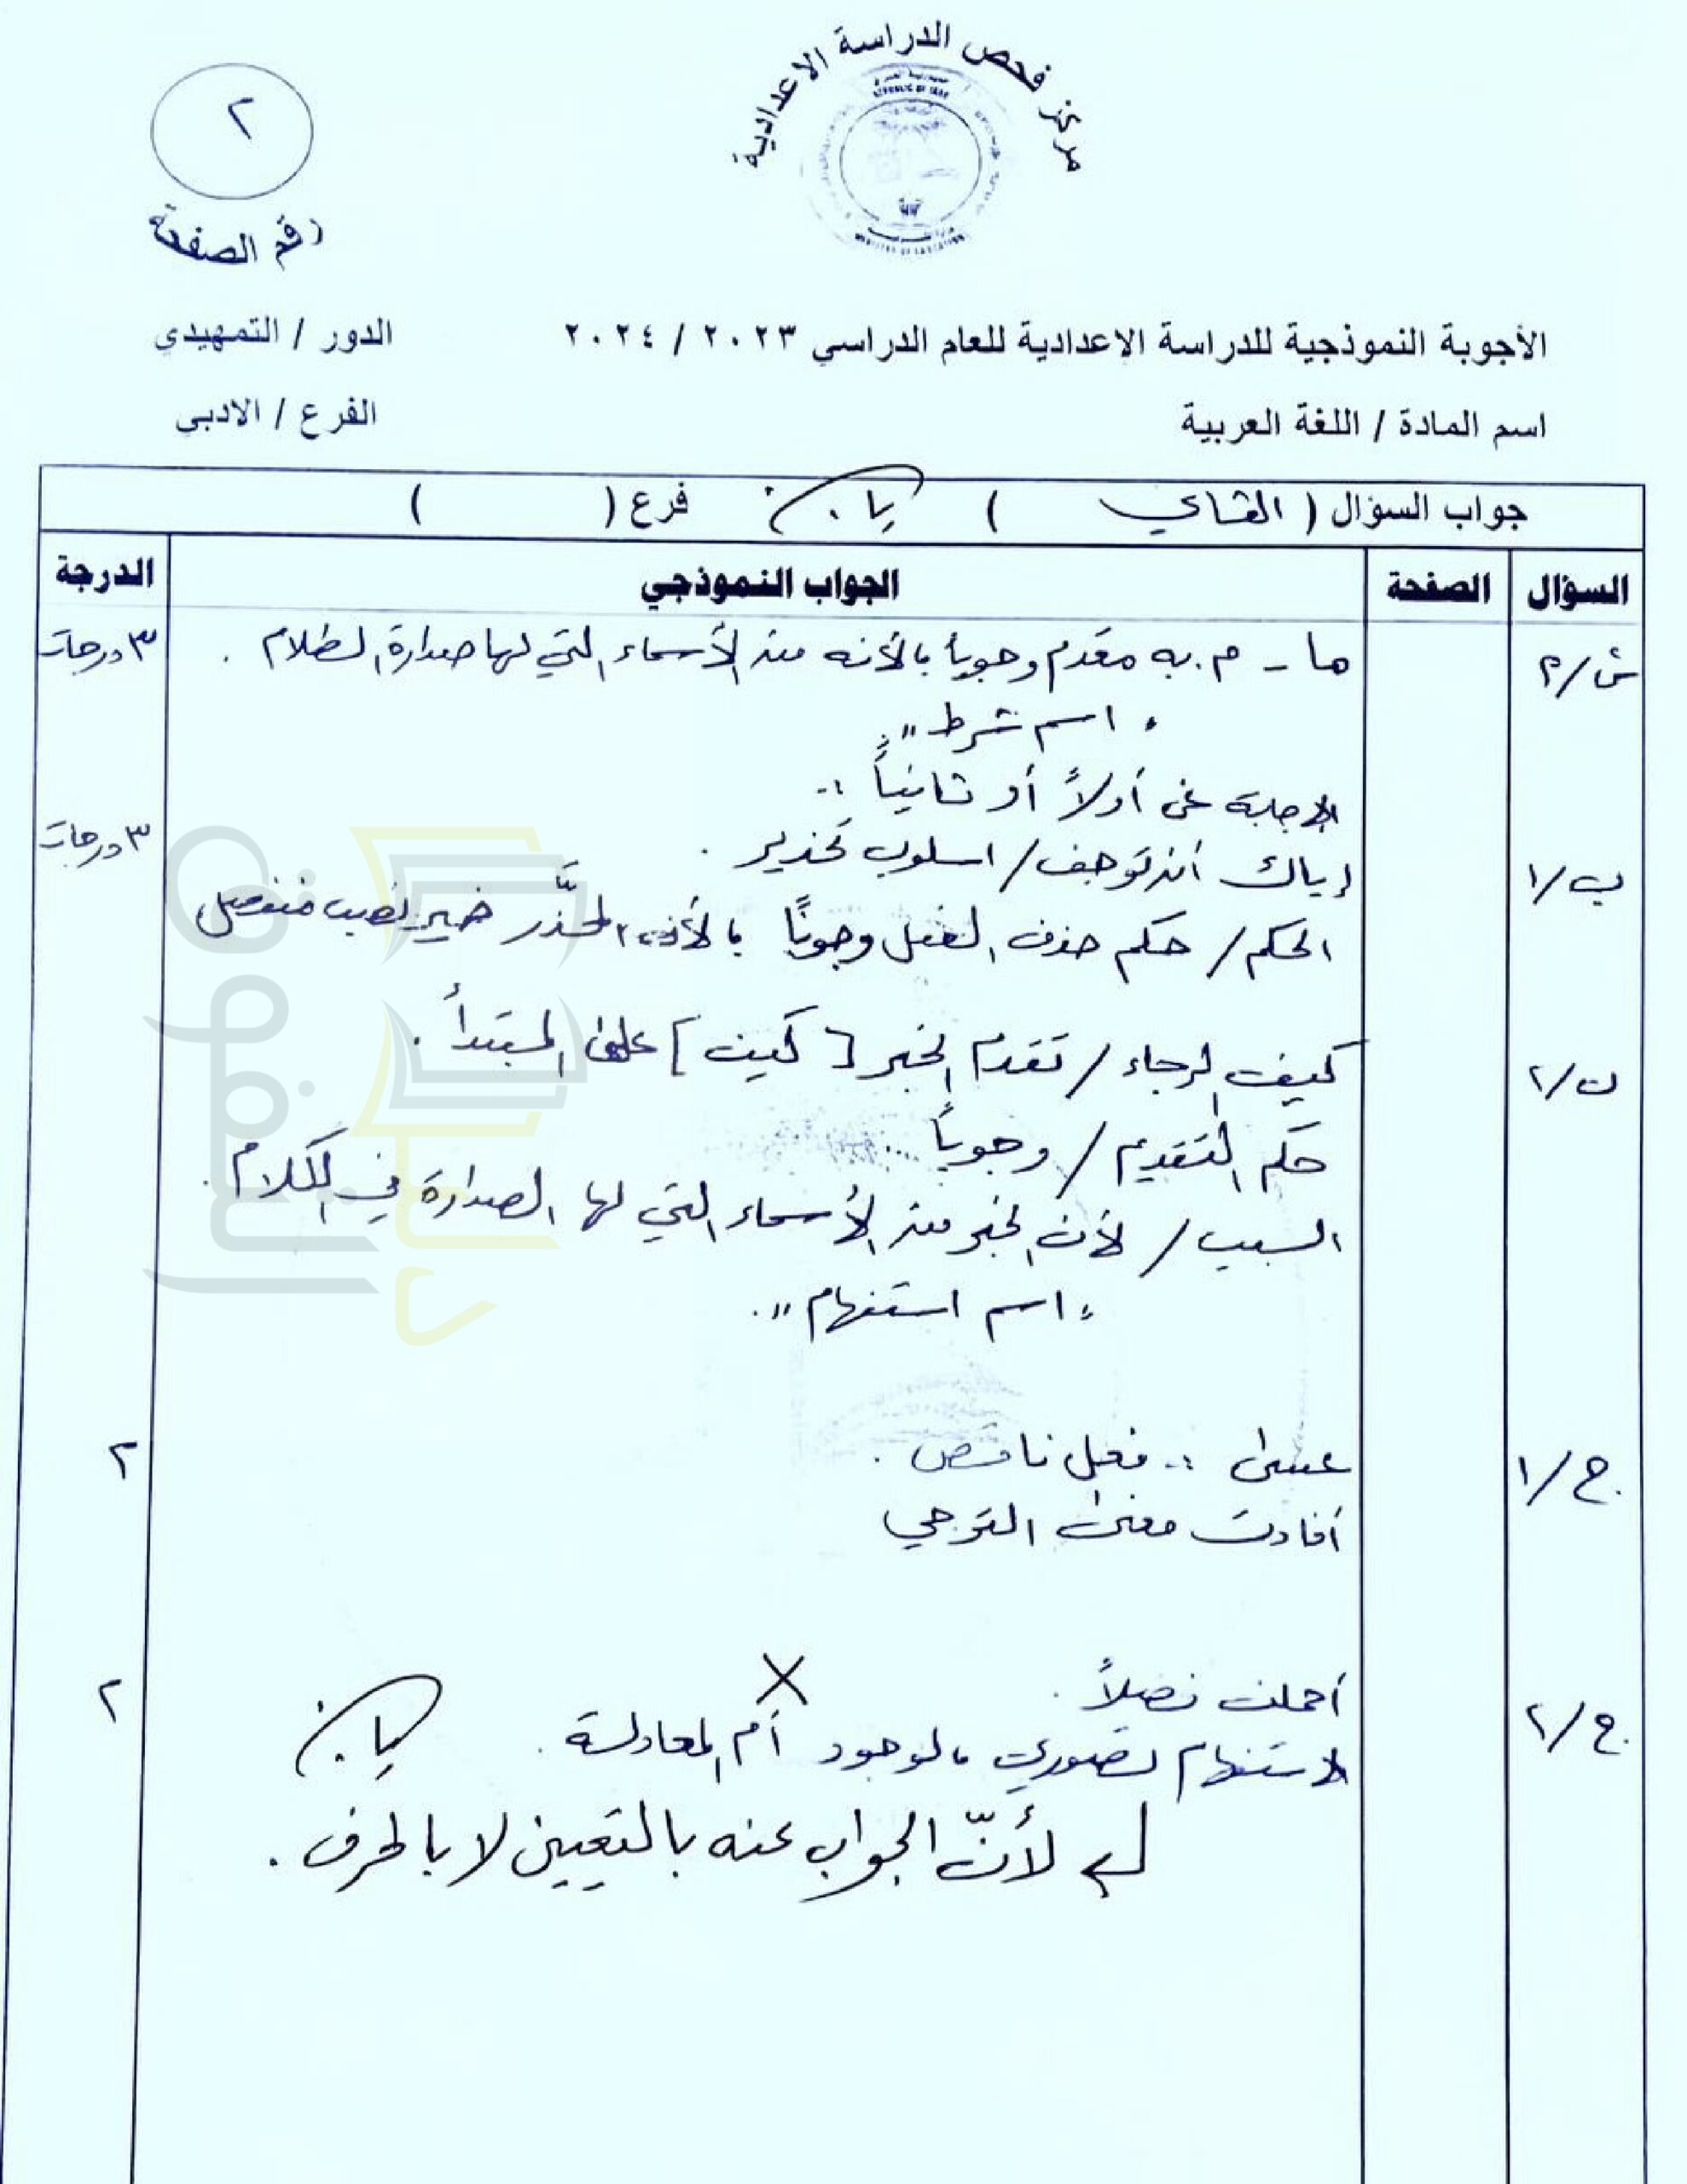 مركز فحص الدراسة الاعدادية
REPUBLIC OF IRAQ
MINISTRY OF EDUCATION
٢
رقم الصفحة
الأجوبة النموذجية للدراسة الاعدادية للعام الدراسي ٢٠٢٣ / ٢٠٢٤
الدور / التمهيدي
اسم المادة / اللغة العربية
الفرع / الادبي
جواب السؤال ( الثاني ) فرع ( )
السؤال الصفحة الجواب النموذجي الدرجة
ما - م. به مقدم وجوباً لأنه من الأسماء التي لها صدارة الكلام . ٣ درجات
" اسم شرط "
الاجابة عن أولاً أو ثانياً :-
ب/١ إياك أن توجف / اسلوب تحذير . ٣ درجات
الحكم / حكم حذف الفعل وجوباً لأن المحذَّر ضمير نصب منفصل
ب/٢ كيف الرجاء / تقدم الخبر [ كيف ] على المبتدأ .
حكم التقديم / وجوباً
السبب / لأن الخبر من الأسماء التي لها الصدارة في الكلام .
" اسم استفهام " .
ج/١ عسى :- فعل ناقص . ٢
أفادت معنى الترجي
ج/٢ أحملت فضلاً . ٢
الاستفهام تصوري لوجود أم المعادلة .
لأنّ الجواب عنه بالتعيين لا بالحرف .
دار التفوق